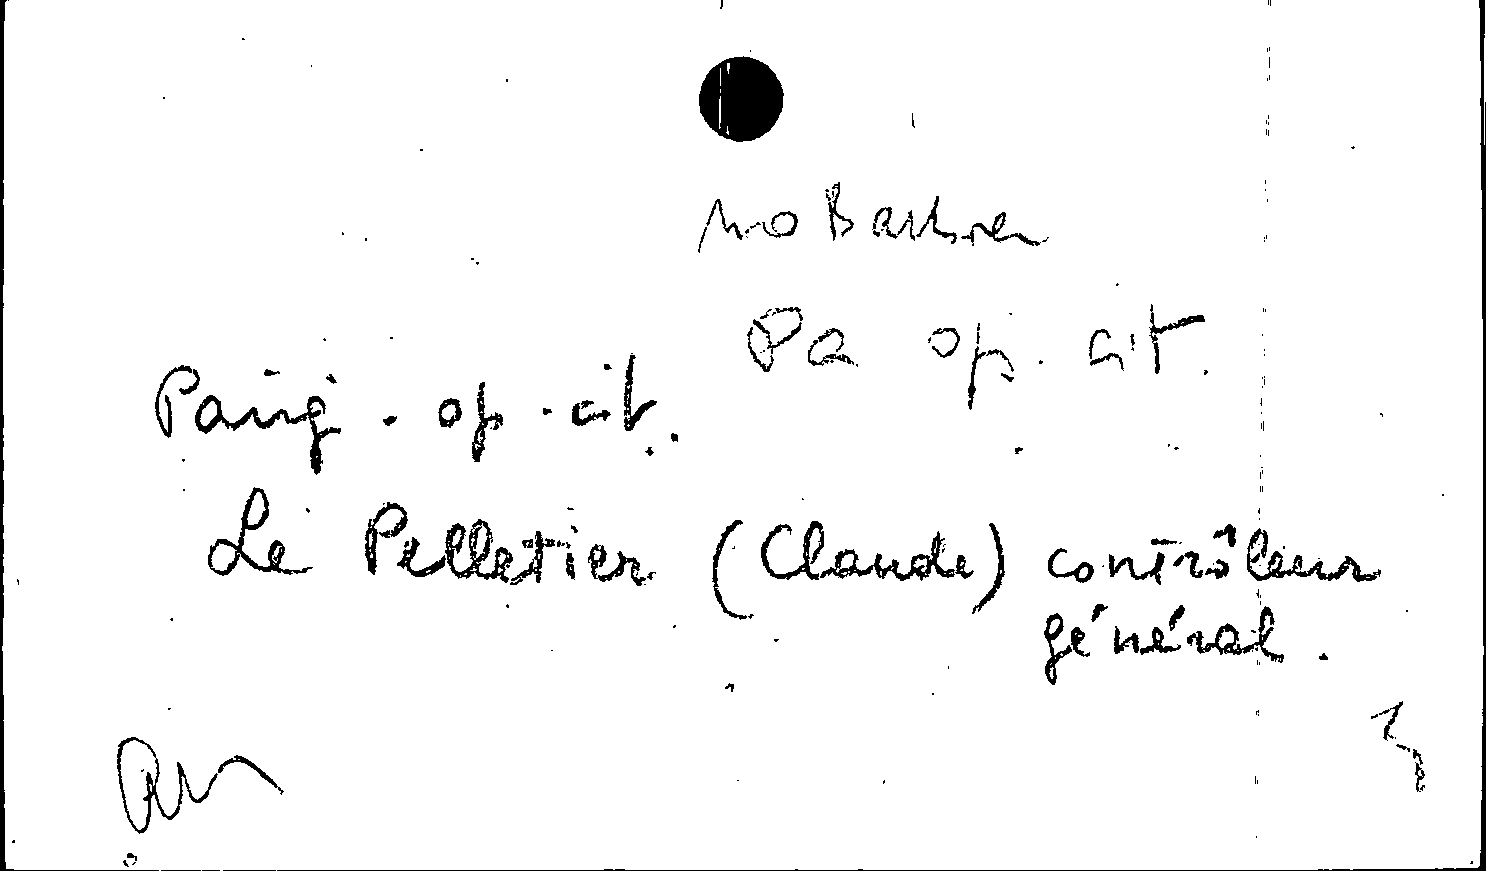 Barbier
Pa op. cit.
op. cit.
Le Pelletier (Claude) contrôleur
général.